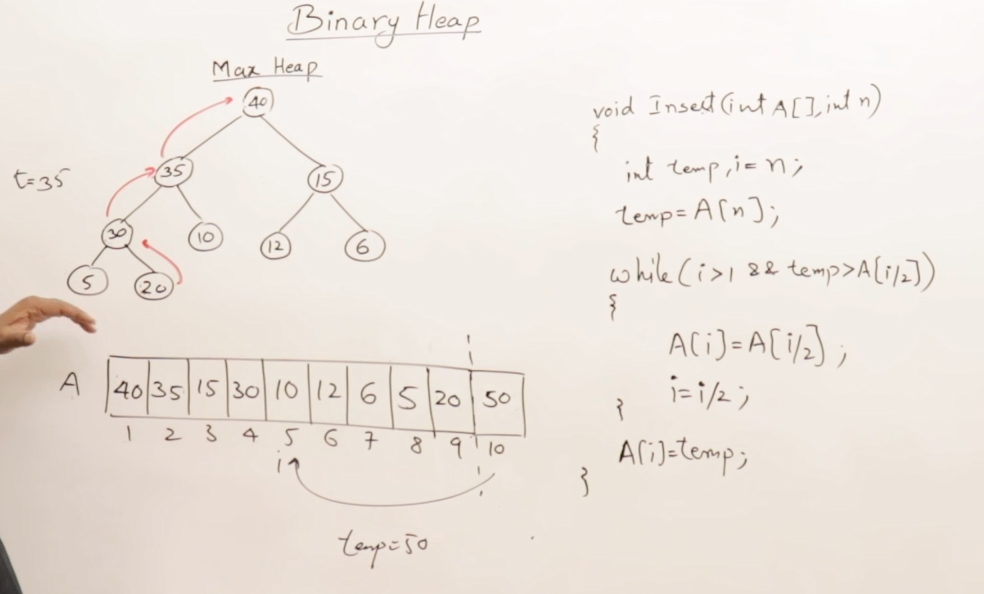 Binary Heap
Max Heap
40
t=35
35
15
30
10
12
6
5
20
A
40 35 15 30 10 12 6 5 20 50
1 2 3 4 5 6 7 8 9 10
i
temp=50
void Insert(int A[],int n)
{
int temp,i=n;
temp=A[n];
while(i>1 && temp>A[i/2])
{
A[i]=A[i/2];
i=i/2;
}
A[i]=temp;
}